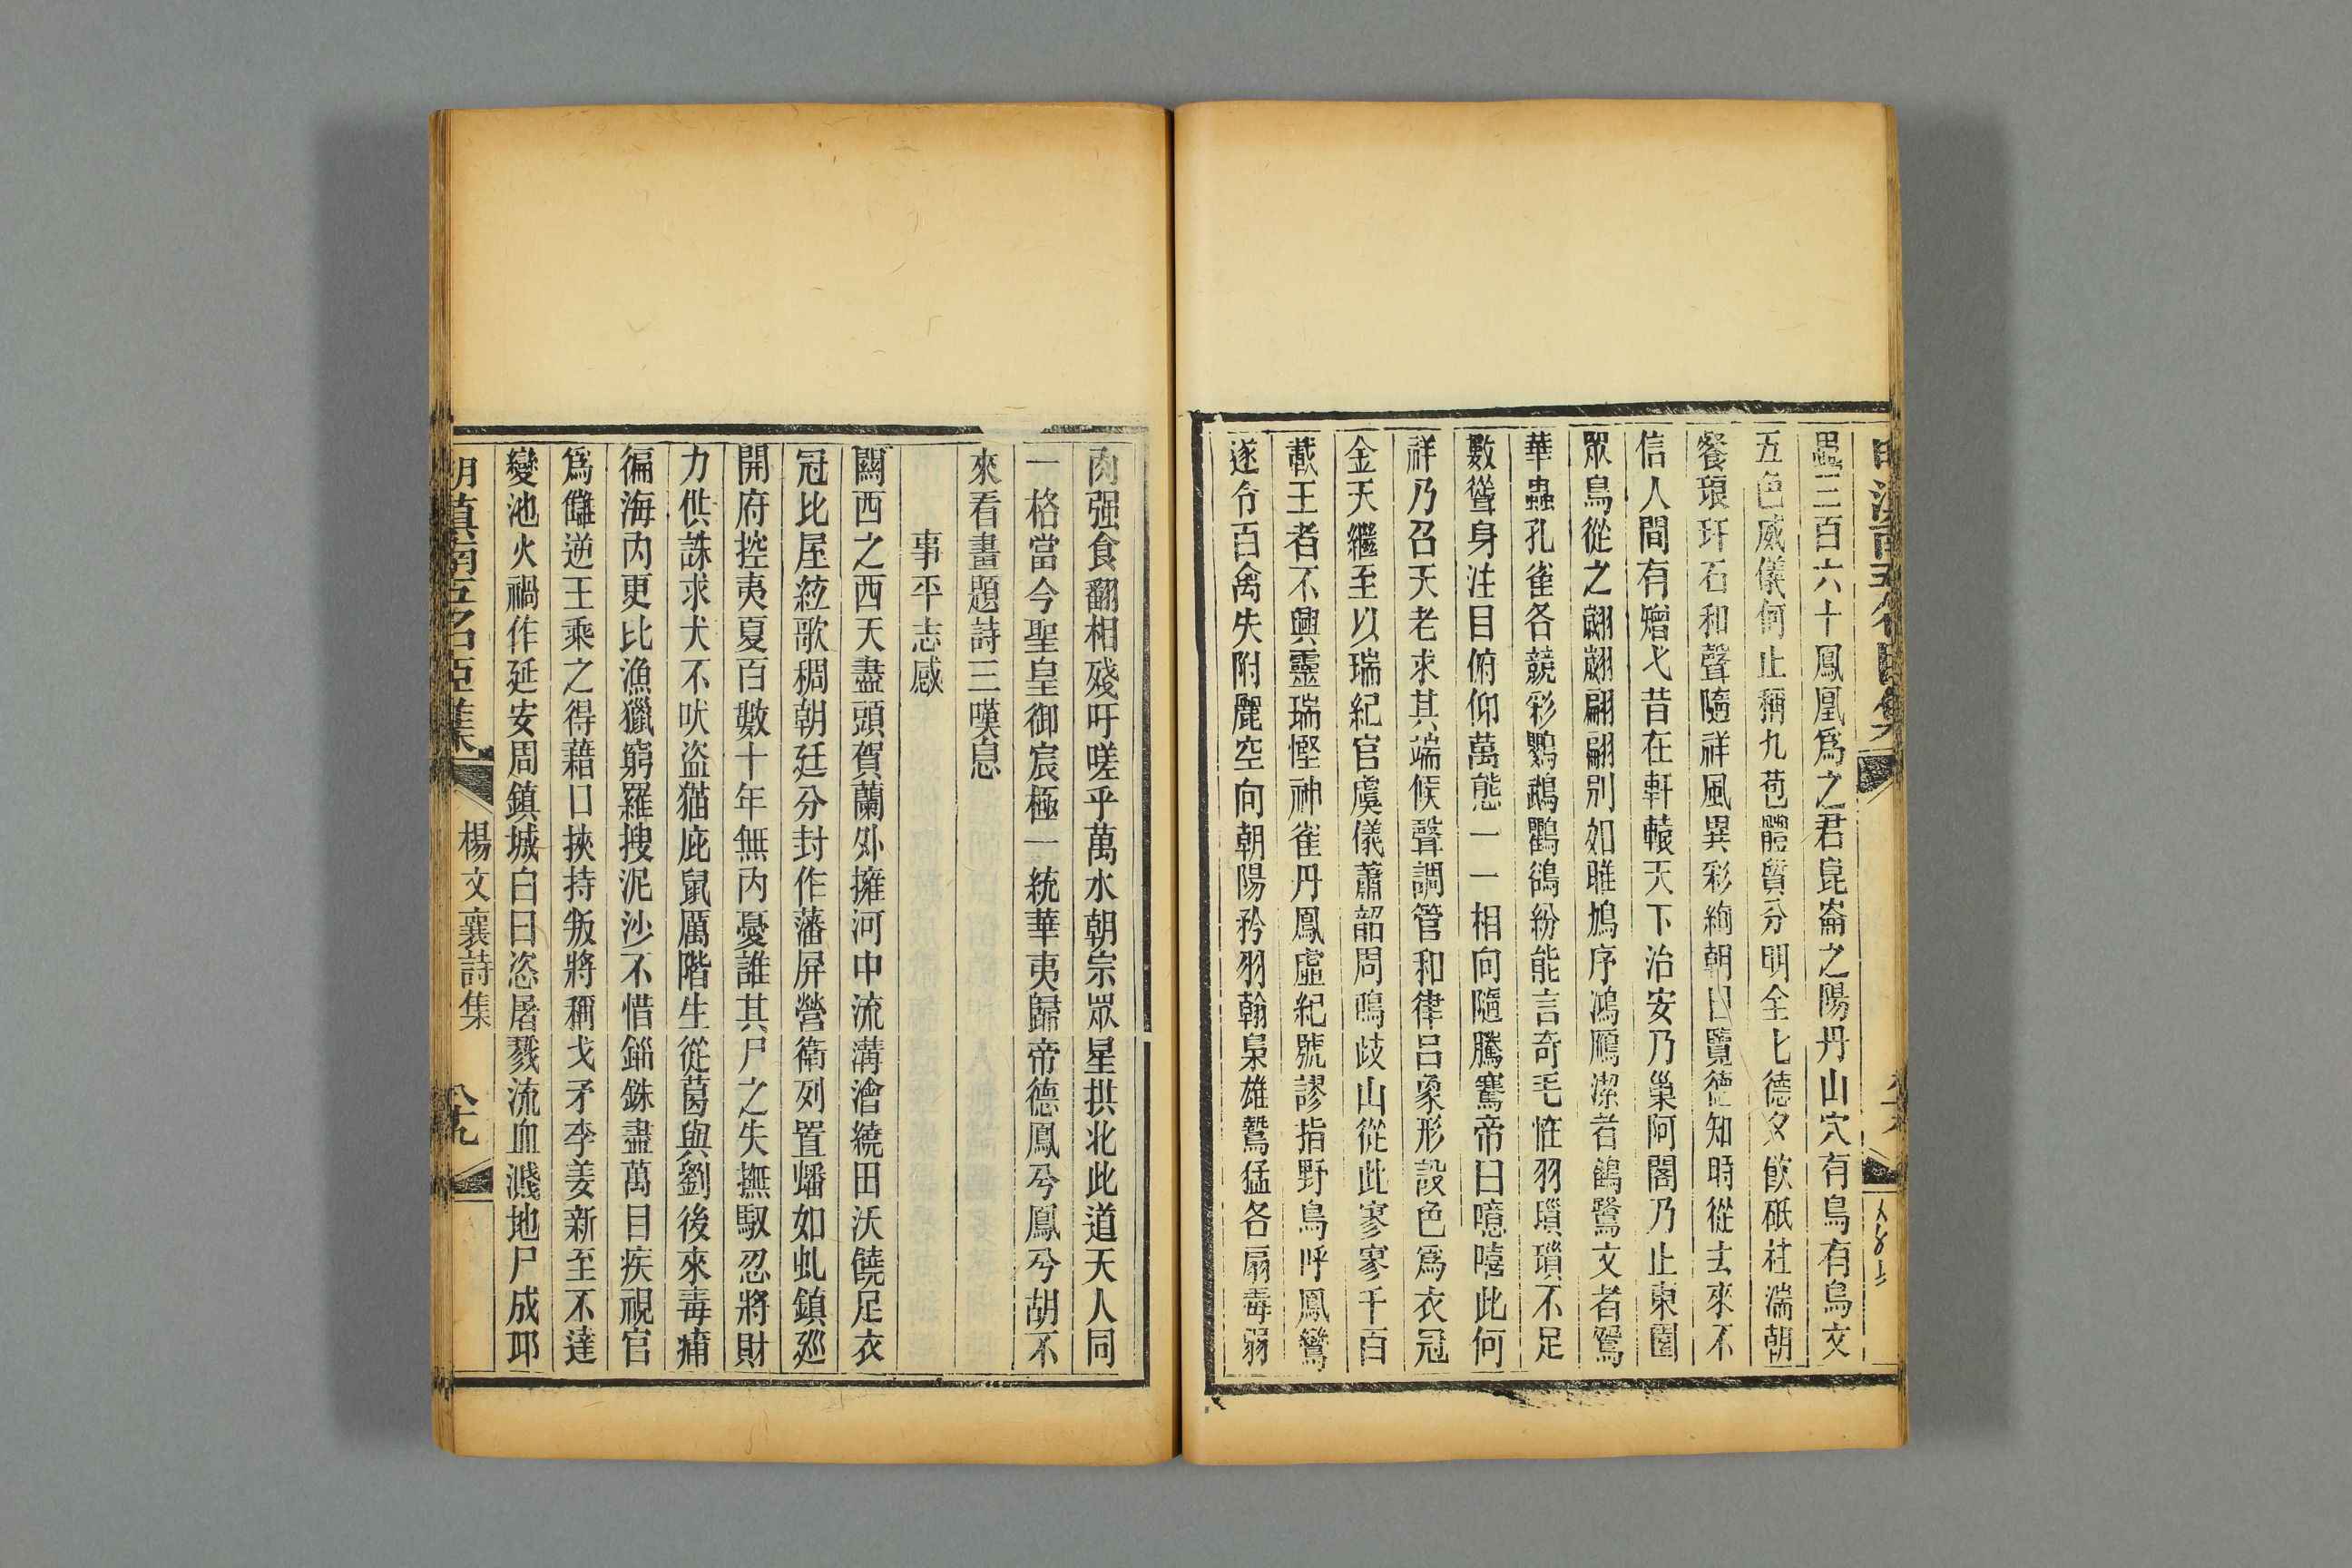 蟲三百六十鳳凰爲之君崑崙之陽丹山穴有鳥有鳥文
五色威儀何止稱九苞體質分明全七德夕飲砥柱湍朝
餐琅玕石和聲隨祥風異彩絢朝日覽德知時從去來不
信人間有矰弋昔在軒轅天下治安乃巢阿閣乃止東園
眾鳥從之翽翽翩翩别如雎鳩序鴻鴈潔者鶴鷺文者鴛
華蟲孔雀各競彩鸚鵡鸜鵒紛能言奇毛恠羽瑣瑣不足
數聳身注目俯仰萬態一一相向隨騰騫帝曰噫嘻此何
祥乃召天老求其端候聲調管和律呂象形設色爲衣冠
金天繼至以瑞紀官虞儀蕭韶周鳴歧山從此寥寥千百
載王者不興靈瑞慳神雀丹鳳虛紀號謬指野鳥呼鳳鸞
遂令百禽失附麗空向朝陽矜羽翰梟雄鷙猛各扇毒弱
肉强食翻相殘吁嗟乎萬水朝宗眾星拱北此道天人同
一格當今聖皇御宸極一統華夷歸帝德鳳兮鳳兮胡不
來看畫題詩三嘆息
事平志感
關西之西天盡頭賀蘭外擁河中流溝澮繞田沃饒足衣
冠比屋絃歌稠朝廷分封作藩屏營衛列置蟠如虬鎮廵
開府控夷夏百數十年無內憂誰其尸之失撫馭忍將財
力供誅求犬不吠盜猫庇鼠厲階生從葛與劉後來毒痡
徧海內更比漁獵窮羅搜泥沙不惜錙銖盡萬目疾視官
爲讎逆王乘之得藉口挾持叛將稱戈矛李姜新至不達
變池火禍作延安周鎮城白日恣屠戮流血濺地尸成邱
明滇南五名臣集
楊文襄詩集